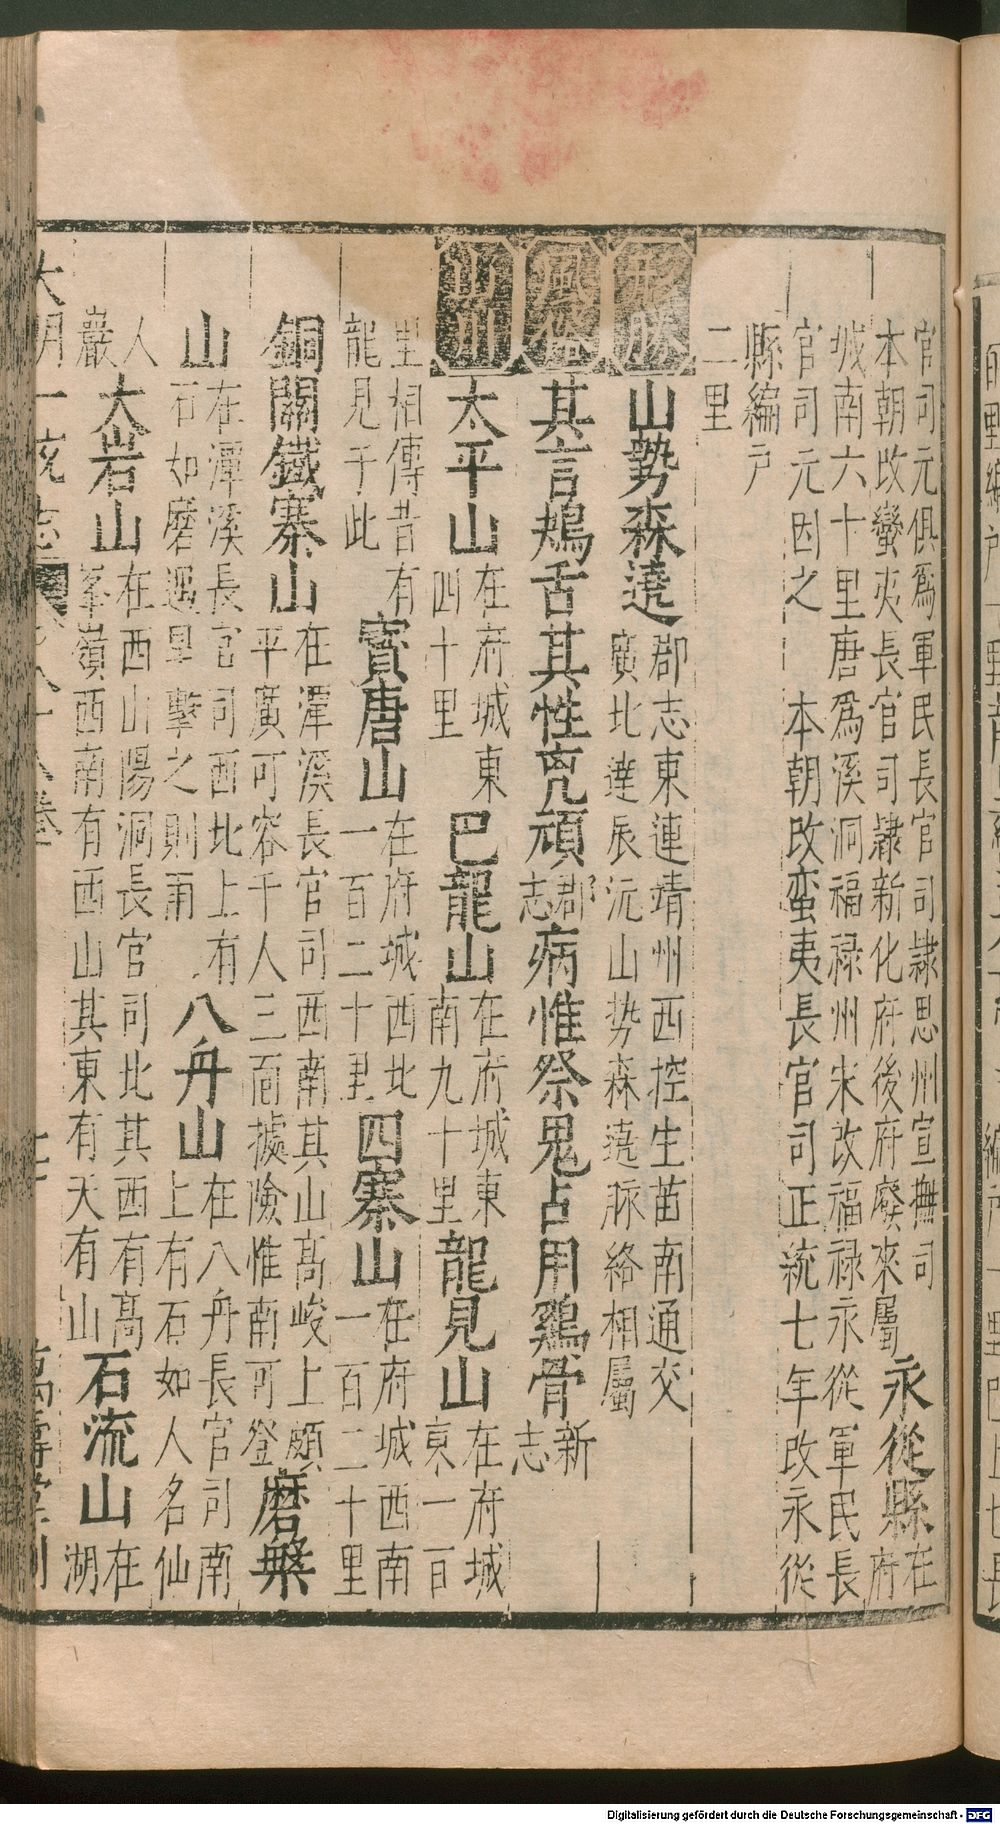 官司元俱爲軍民長官司隷思州宣撫司
本朝改蠻夷長官司隷新化府後府廢來屬
永從縣
在
府
城南六十里唐爲溪洞福禄州宋改福禄永從軍民長
官司元因之 本朝改蛮夷長官司正統七年改永從
縣編戸
二里
形勝
山勢森遶
郡志東連靖州西控生苗南通交
廣北達辰沅山勢森遶脉絡相屬
風俗
其言鴂舌其性兇頑
郡
志
病惟祭鬼占用鷄骨
新
志
山川
太平山
在府城東
四十里
巴龍山
在府城東
南九十里
龍見山
在府城
東一百
里相傳昔有
龍見于此
寳唐山
在府城西北
一百二十里
四寨山
在府城西南
一百二十里
銅關鐵寨山
在潭溪長官司西南其山高峻上頗
平廣可容千人三面據險惟南可登
磨槃
山
在潭溪長官司西北上有
石如磨遇旱擊之則雨
八舟山
在八舟長官司南
上有石如人名仙
人
巖
大岩山
在西山陽洞長官司北其西有高
峯嶺西南有西山其東有天有山
石流山
在
湖
大明一統志
八十八卷
萬壽堂刊
Digitalisierung gefördert durch die Deutsche Forschungsgemeinschaft - DFG